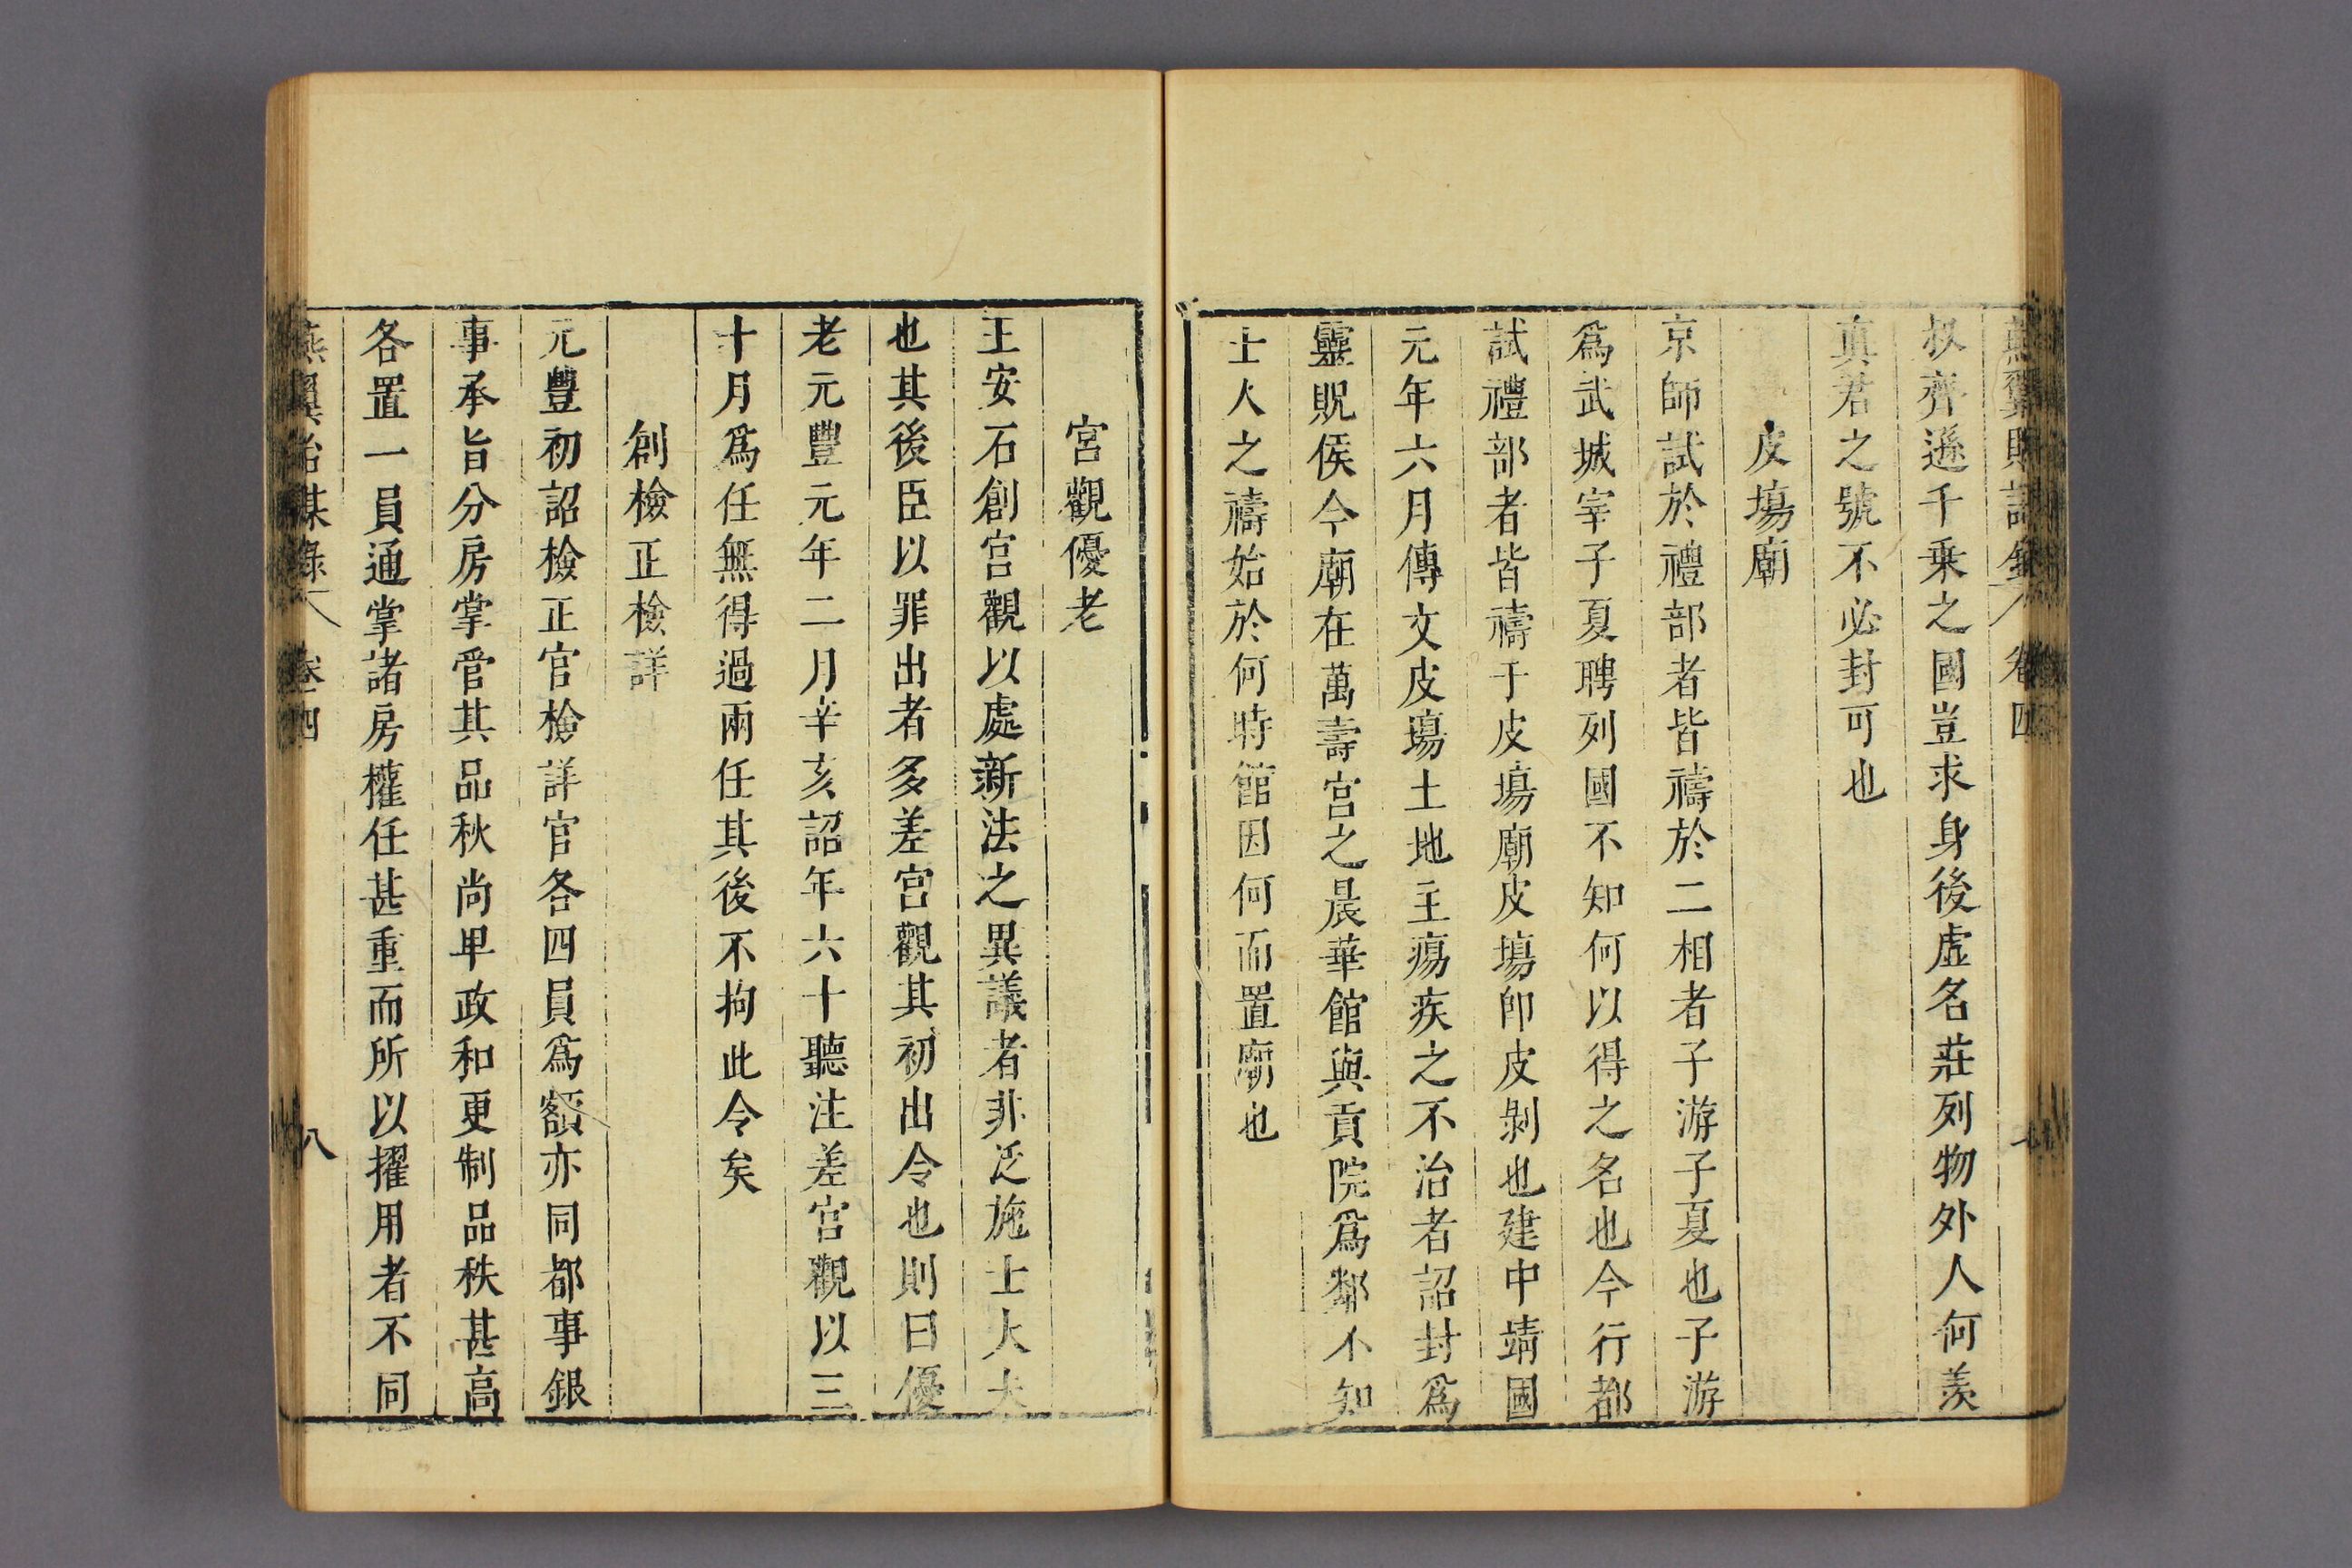 卷四
叔齊遜千乗之國豈求身後虛名莊列物外人何羨
真君之號不必封可也
皮塲廟
京師試於禮部者皆禱於二相者子游子夏也子游
爲武城宰子夏聘列國不知何以得之名也今行都
試禮部者皆禱于皮塲廟皮塲卽皮剝也建中靖國
元年六月傳文皮塲土地主瘍疾之不治者詔封爲
靈貺侯今廟在萬壽宮之晨華館與貢院爲鄰不知
士人之禱始於何時館因何而置廟也
宮觀優老
王安石創宮觀以處新法之異議者非泛施士大夫
也其後臣以罪出者多差宮觀其初出令也則曰優
老元豐元年二月辛亥詔年六十聽注差宮觀以三
十月爲任無得過兩任其後不拘此令矣
創檢正檢詳
元豐初詔檢正官檢詳官各四員爲額亦同都事銀
事承旨分房掌管其品秋尚早政和更制品秩甚高
各置一員通掌諸房權任甚重而所以擢用者不同
燕翼詒謀錄 卷四 八